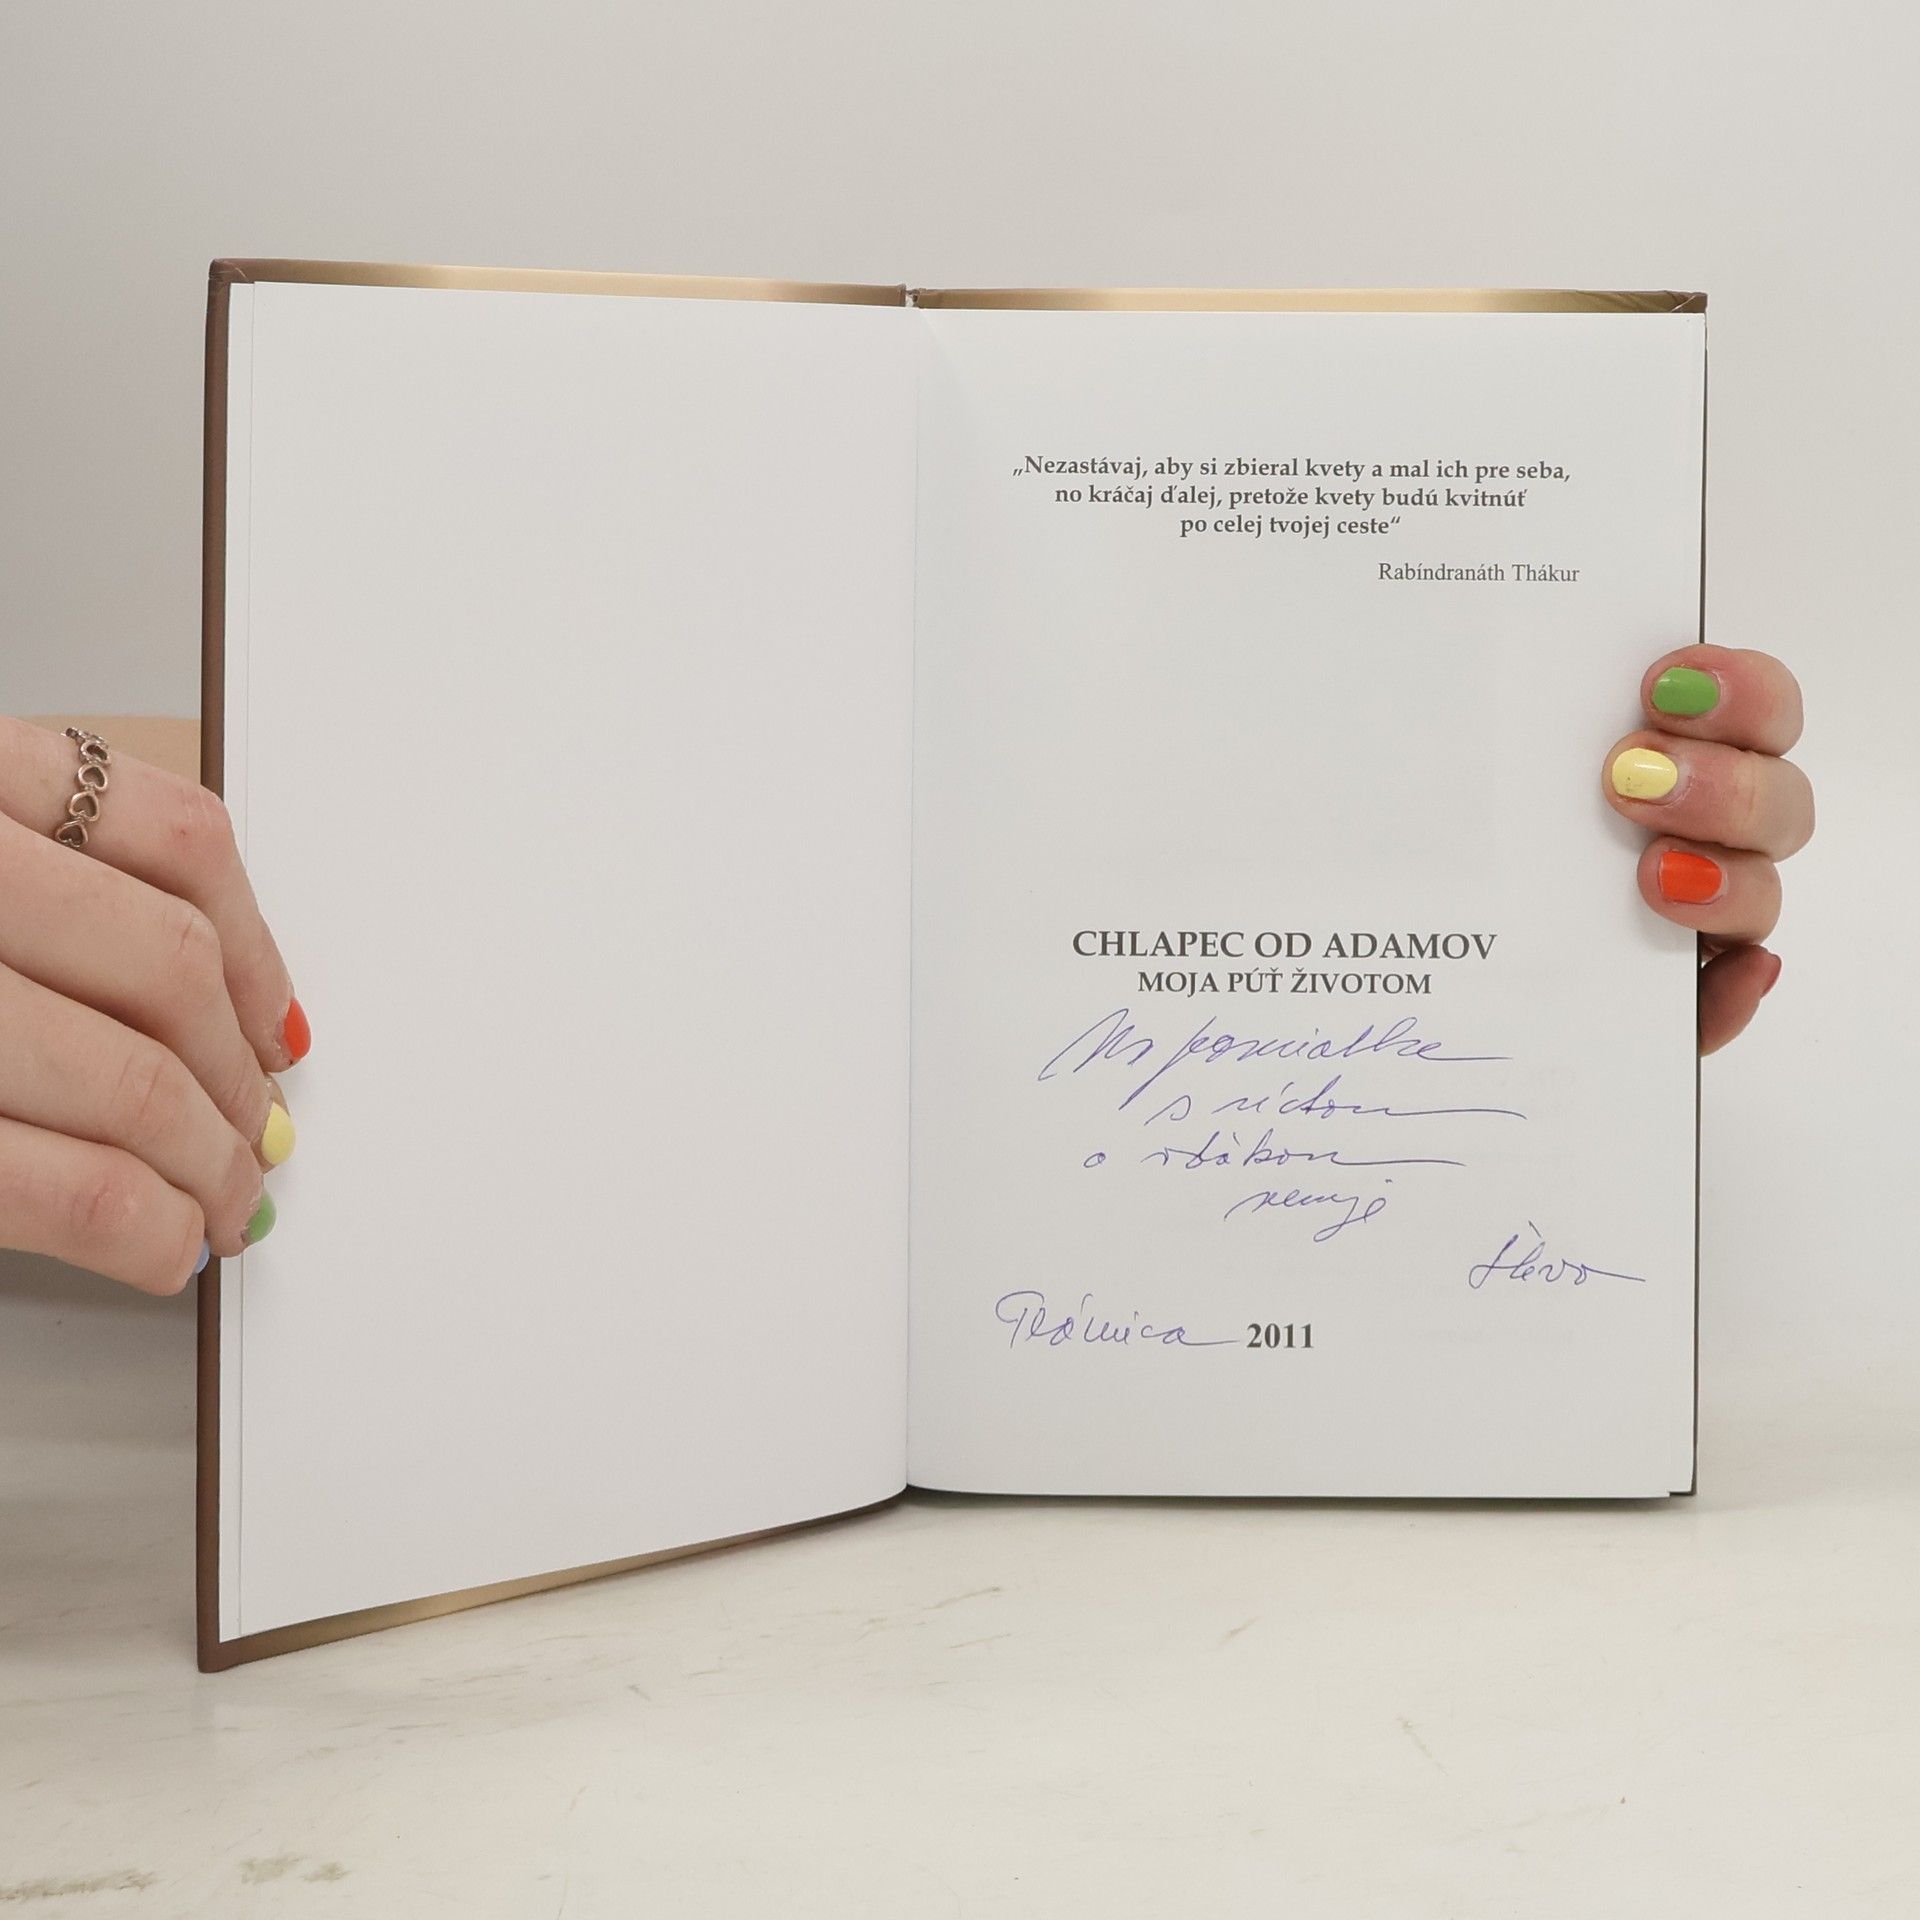 „Nezastávaj, aby si zbieral kvety a mal ich pre seba,
no kráčaj ďalej, pretože kvety budú kvitnúť
po celej tvojej ceste“
Rabíndranáth Thákur
CHLAPEC OD ADAMOV
MOJA PÚŤ ŽIVOTOM
Na pamiatku
s úctou
a vďakou
venuje
Števo
2011